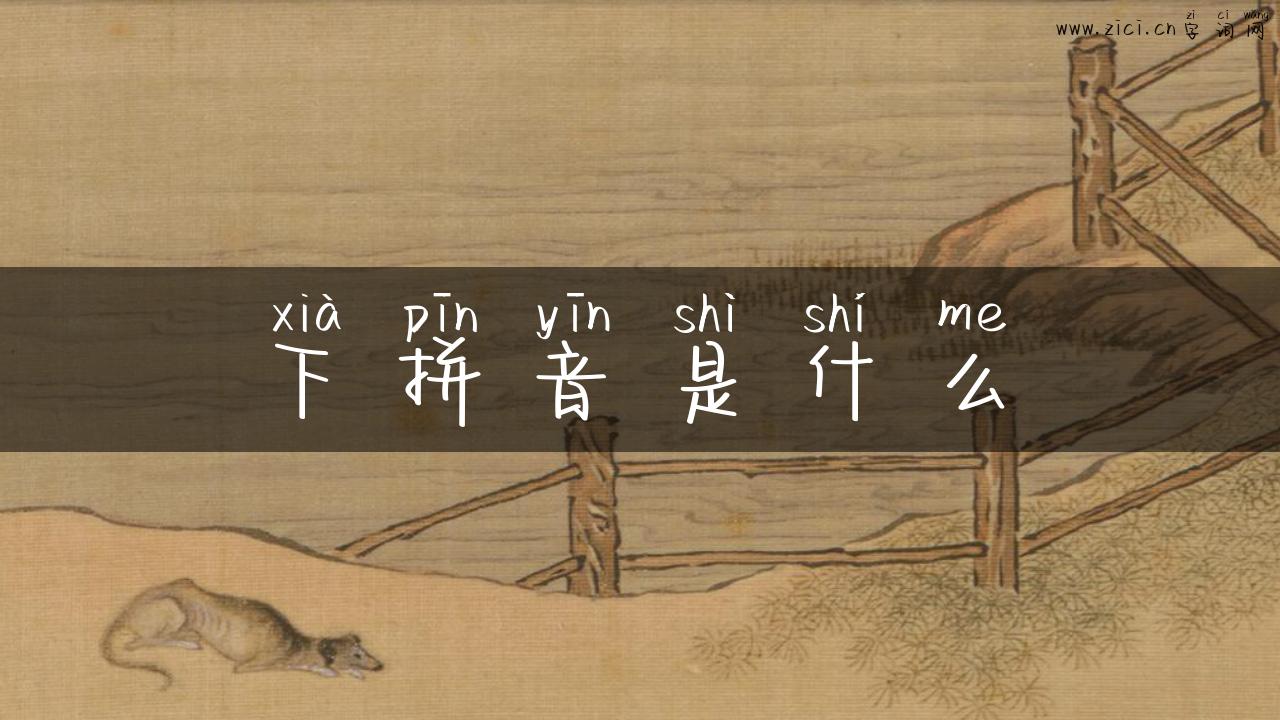 zì cí wǎng
www.zici.cn 字词网
xià pīn yīn shì shí me
下拼音是什么